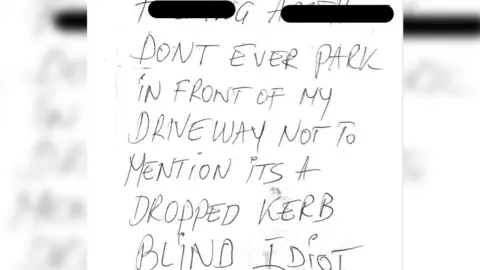 DONT EVER PARK
IN FRONT OF MY
DRIVEWAY NOT TO
MENTION ITS A
DROPPED KERB
BLIND IDIOT